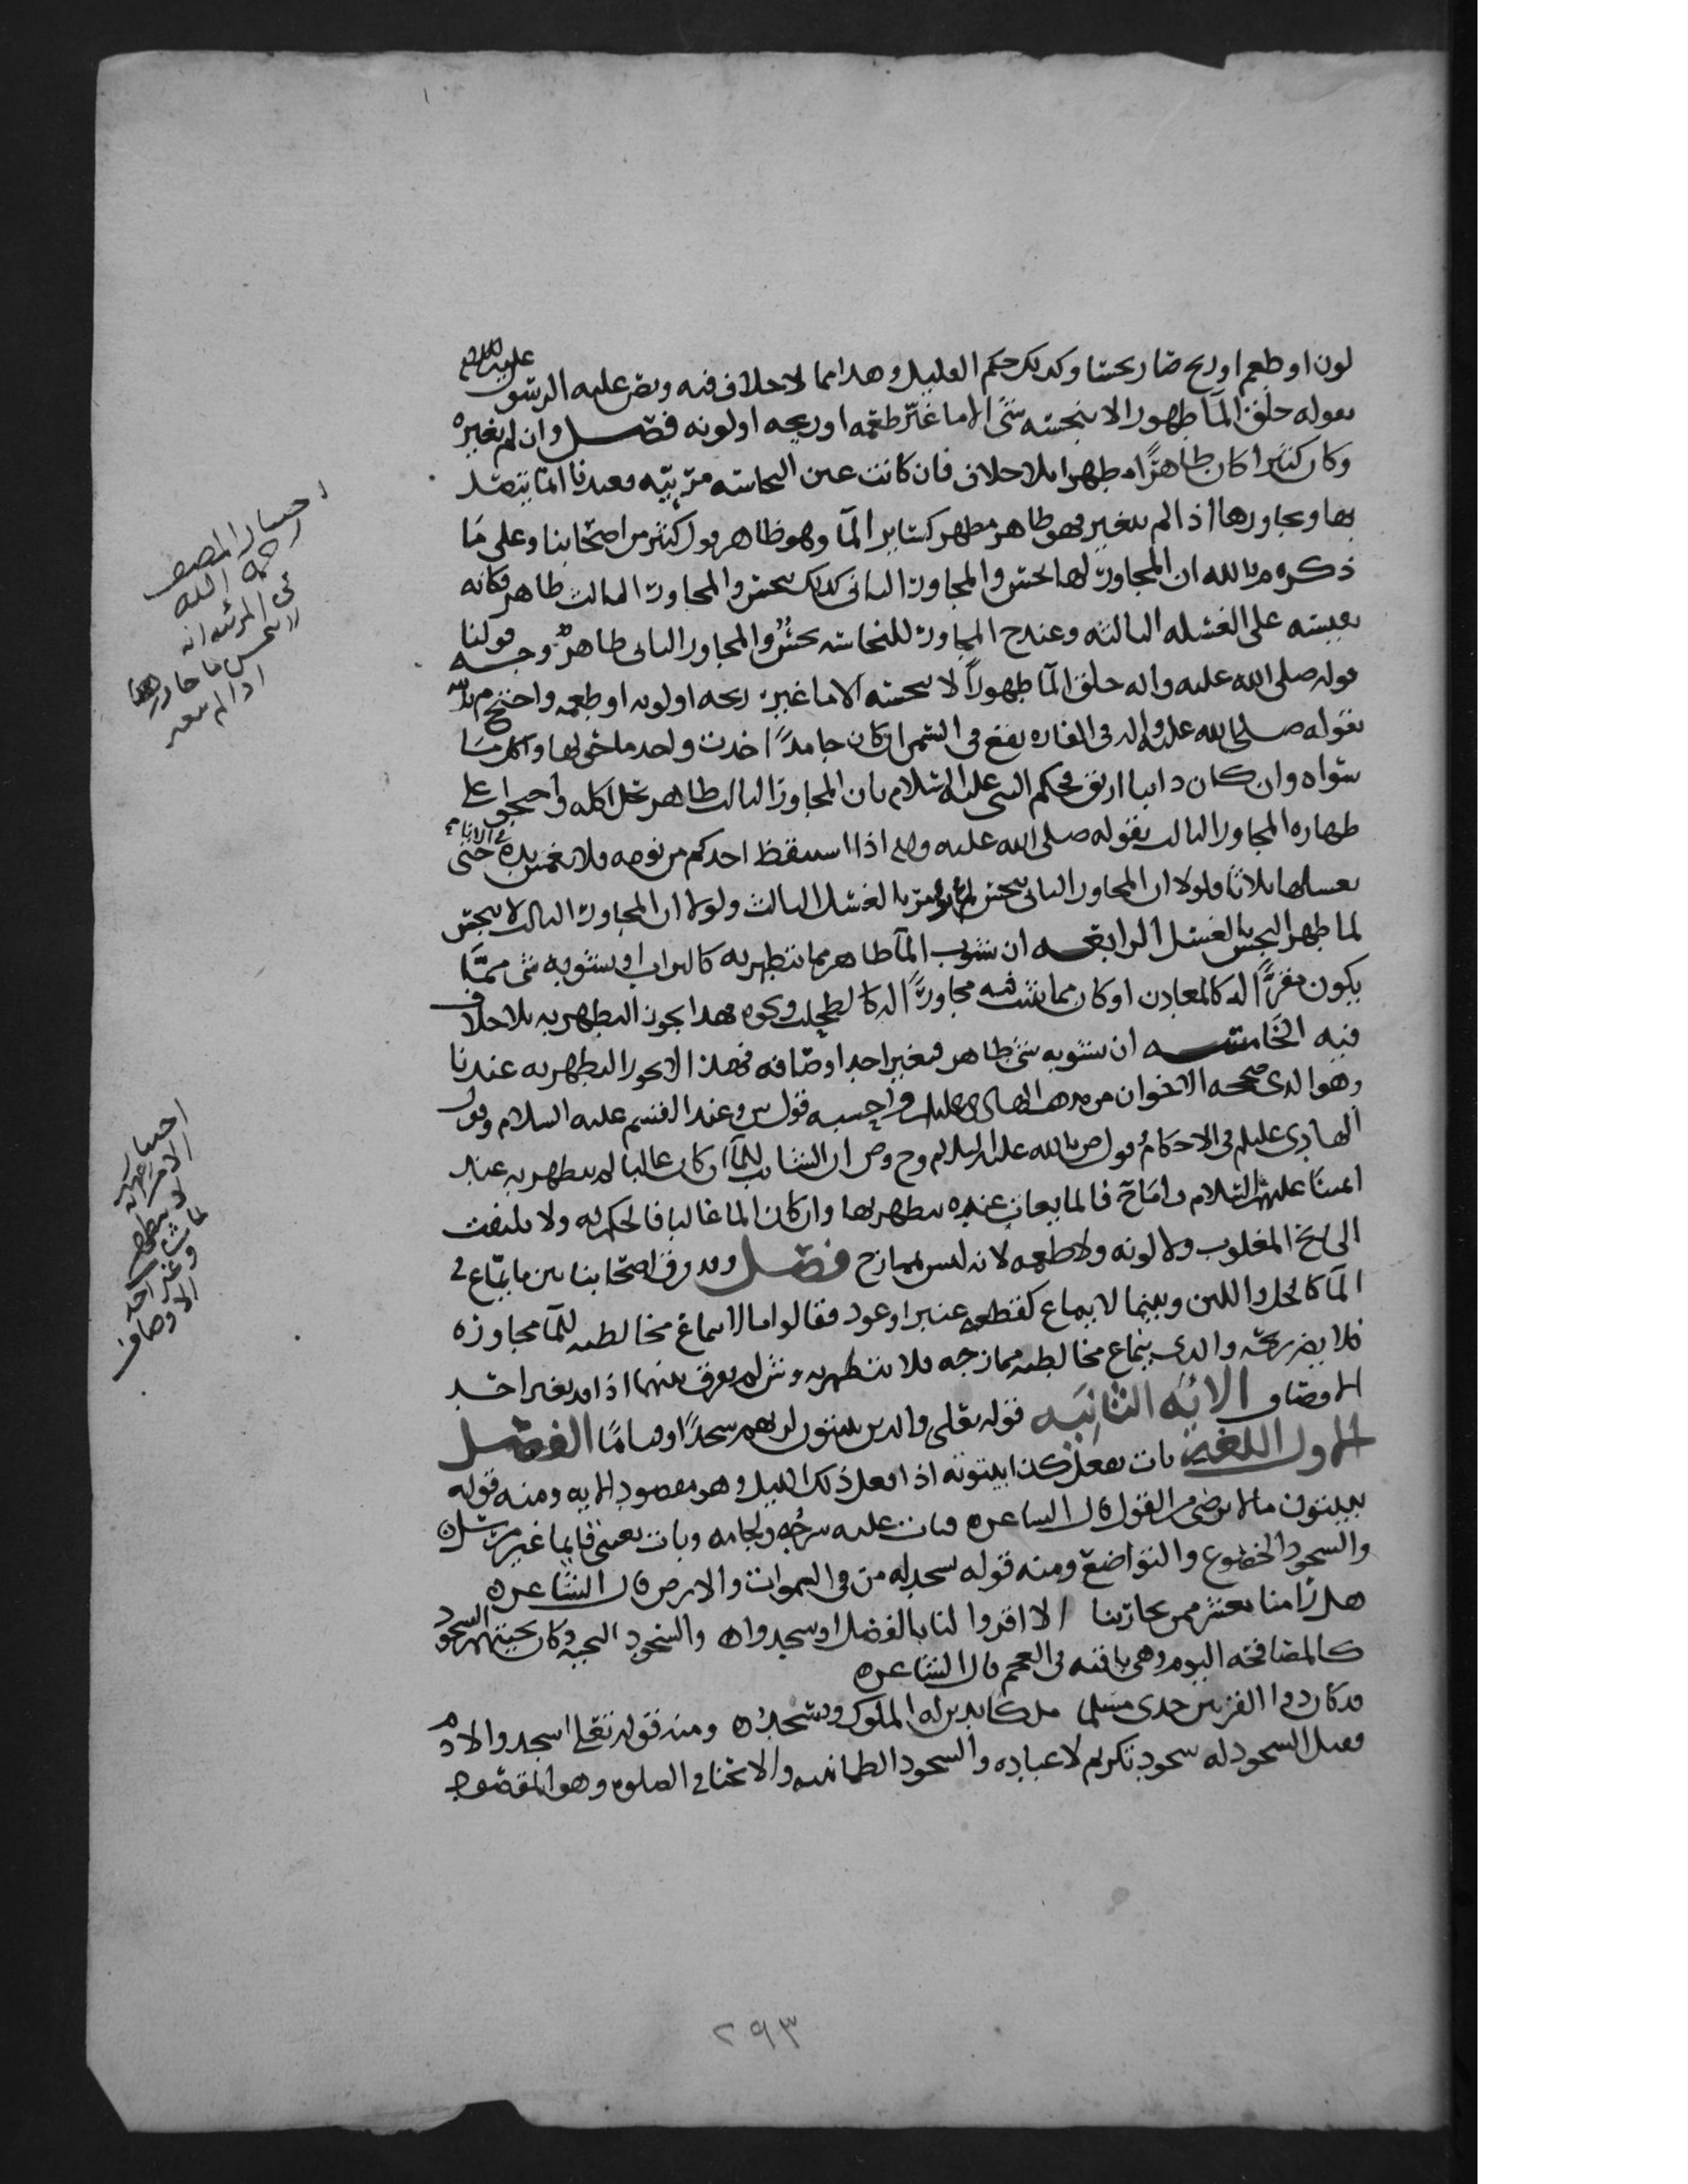 لون او طعم او ريح صار نجسا وكذلك حكم القليل وهذا مما لا خلاف فيه ونص عليه الرسول عليه السلم
بقوله خلق المآ طهورا لا ينجسه شى الا ما غيّر طعمه او ريحه او لونه فصل وان لم يغيره
وكان كثيرا كان طاهرًا مطهرا بلا خلاف فان كانت عين النجاسه مرئيه فعندنا الما يتصل
بها ويجاورها اذا لم يتغير فهو طاهر مطهر كساير المآ وهو ظاهر قول كثير من اصحابنا وعلى مَا
ذكره م بالله ان المجاور لها نجس والمجاور الثانى كذلك نجس والمجاور الثالث طاهر فكانه
يقيسه على الغسله الثالثه وعند ح المجاور للنجاسه نجسٌ والمجاور الثانى طاهرٌ وجه قولنا
قوله صلى الله عليه واله خلق المآ طهوراً لا ينجسه الا ما غير ريحه او لونه او طعمه واحتج م بالله
بقوله صلى الله عليه واله فى الفاره يقع فى السمن ان كان جامداً اخذت واخذ ما حولها واكل مما
سواه وان كان ذايبا اريق فحكم النبى عليه السلام بان المجاور الثالث طاهر يحل اكله واحتجوا على
طهاره المجاور الثالث بقوله صلى الله عليه واله اذا استيقظ احدكم من نومه فلا يغمس يده فى الانا حتى
يغسلها ثلاثا فلولا ان المجاور الثانى نجس لم يؤمر بالغسل الثالث ولولا ان المجاور الثالث لا ينجس
لما طهر النجس بالغسل الرابعه ان يشوب المآ طاهر مما يتطهر به كالتراب او يشوبه شى ممَّا
يكون مقرًّا له كالمعادن او كان مما ينبت فيه مجاورًا له كالطحلب ونحوه فهذا يجوز التطهر به بلا خلاف
فيه الخامسه ان يشوبه شى طاهر فيغير احد اوصافه فهذا لا يجوز التطهر به عندنا
وهو الذى صححه الاخوان من مذهب الهادى عليلم واحسبه قول ن وعند القسم عليه السلام وقول
الهادى عليلم فى الاحكام وقول ص بالله عليه السلام وح وص ان الشايب للمآ ان كان غالبا لم يتطهر به عند
ايمتنا عليهم السلام واما ح فالمايعات عنده يتطهر بها وان كان الما غالبا فالحكم له ولا يلتفت
الى ريح المغلوب ولا لونه ولا طعمه لانه ليس بممازح فصل وقد فرق اصحابنا بين ما ينماع فى
المآ كالخل واللبن وبينما لا ينماع كقطعه عنبر او عود فقالوا ما لا ينماع مخالطته للمآ مجاوره
فلا يضر ريحه والذى ينماع مخالطته ممازجه فلا يتطهر به و ش لم يفرق بينهما اذا لم يغير احد
الاوصاف الايه الثانيه قوله تعلى والذين يبيتون لربهم سجدًا وقيامًا الفصل
الاول اللغه بات يفعل كذا بيتوته اذا فعل ذلك بالليل وهو مقصود الايه ومنه قوله
يبيتون مالا يرضى من القول قال الشاعره فبات عليه سرجه ولجامه وبات بعينى قايما غير مرسل ه
والسجود الخضوع والتواضع ومنه قوله يسجد له من فى السموات والارض قال الشاعره
هل رامنا معشر ممن يحاربنا الا اقروا لنا بالفضل او سجدوا ه والسجود التحيه وكان تحيتهم السجود
كالمصافحه اليوم وهى باقيه فى العجم قال الشاعره
قد كان ذوا القرنين جدى مسلما ملكا تدين له الملوك وتسجد ه ومنه قوله تعلى اسجدوا لادم
فقيل السجود له سجود تكريم لا عباده والسجود الطمانينه والانحنا فى الصلوه وهو المقصود
اختيار المصنف
رحمه الله
فى المرئيه انه
لا ينجس ما جاورها
اذا لم يتغير
اختيار
الامير انه
لا يتطهر
بما شابه
وغير احد
الاوصاف
٢٩٣